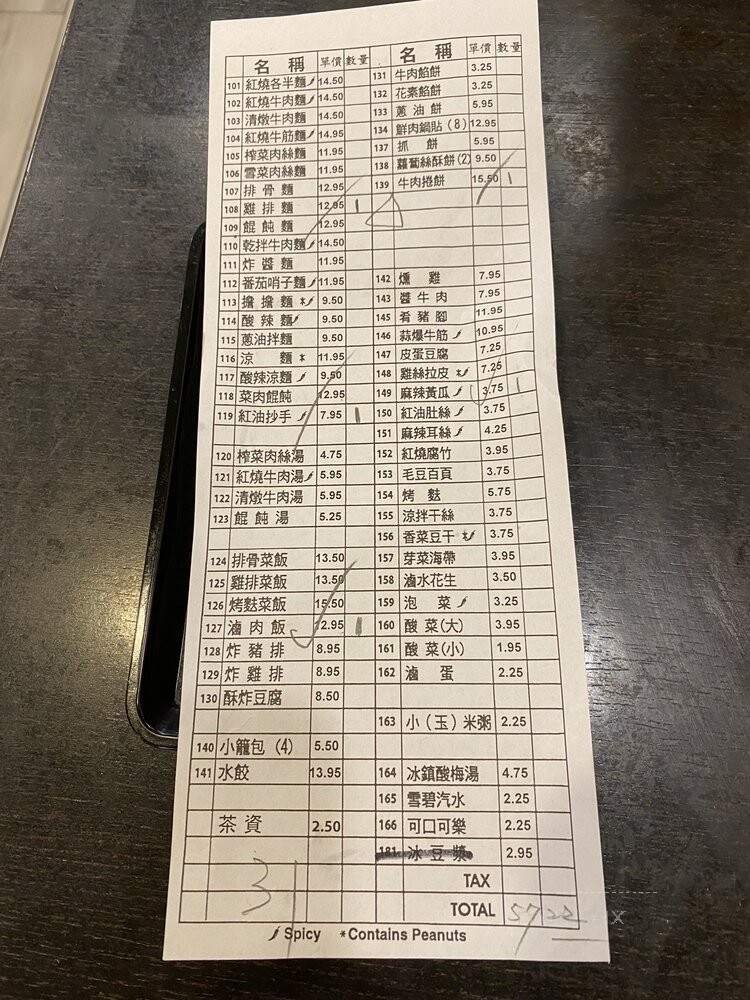 名 稱 單價 數量
101 紅燒各半麵 14.50
102 紅燒牛肉麵 14.50
103 清燉牛肉麵 14.50
104 紅燒牛筋麵 14.95
105 榨菜肉絲麵 11.95
106 雪菜肉絲麵 11.95
107 排骨麵 12.95
108 雞排麵 12.95 1
109 餛飩麵 12.95
110 乾拌牛肉麵 14.50
111 炸醬麵 11.95
112 番茄哨子麵 11.95
113 擔擔麵 * 9.50
114 酸辣麵 9.50
115 蔥油拌麵 9.50
116 涼 麵 * 11.95
117 酸辣涼麵 9.50
118 菜肉餛飩 12.95
119 紅油抄手 7.95 1
120 榨菜肉絲湯 4.75
121 紅燒牛肉湯 5.95
122 清燉牛肉湯 5.95
123 餛飩湯 5.25
124 排骨菜飯 13.50
125 雞排菜飯 13.50
126 烤麩菜飯 15.50
127 滷肉飯 12.95 1
128 炸豬排 8.95
129 炸雞排 8.95
130 酥炸豆腐 8.50
140 小籠包 (4) 5.50
141 水餃 13.95
茶資 2.50
31
名 稱 單價 數量
131 牛肉餡餅 3.25
132 花素餡餅 3.25
133 蔥油餅 5.95
134 鮮肉鍋貼 (8) 12.95
137 抓 餅 5.95
138 蘿蔔絲酥餅 (2) 9.50
139 牛肉捲餅 15.50 1
142 燻 雞 7.95
143 醬牛肉 7.95
145 肴豬腳 11.95
146 蒜爆牛筋 10.95
147 皮蛋豆腐 7.25
148 雞絲拉皮 * 7.25
149 麻辣黃瓜 3.75 1
150 紅油肚絲 3.75
151 麻辣耳絲 4.25
152 紅燒腐竹 3.95
153 毛豆百頁 3.75
154 烤 麩 5.75
155 涼拌干絲 3.75
156 香菜豆干 * 3.75
157 芽菜海帶 3.95
158 滷水花生 3.50
159 泡 菜 3.25
160 酸菜(大) 3.95
161 酸菜(小) 1.95
162 滷 蛋 2.25
163 小(玉)米粥 2.25
164 冰鎮酸梅湯 4.75
165 雪碧汽水 2.25
166 可口可樂 2.25
181 冰豆漿 2.95
TAX
TOTAL 57.22
Spicy *Contains Peanuts